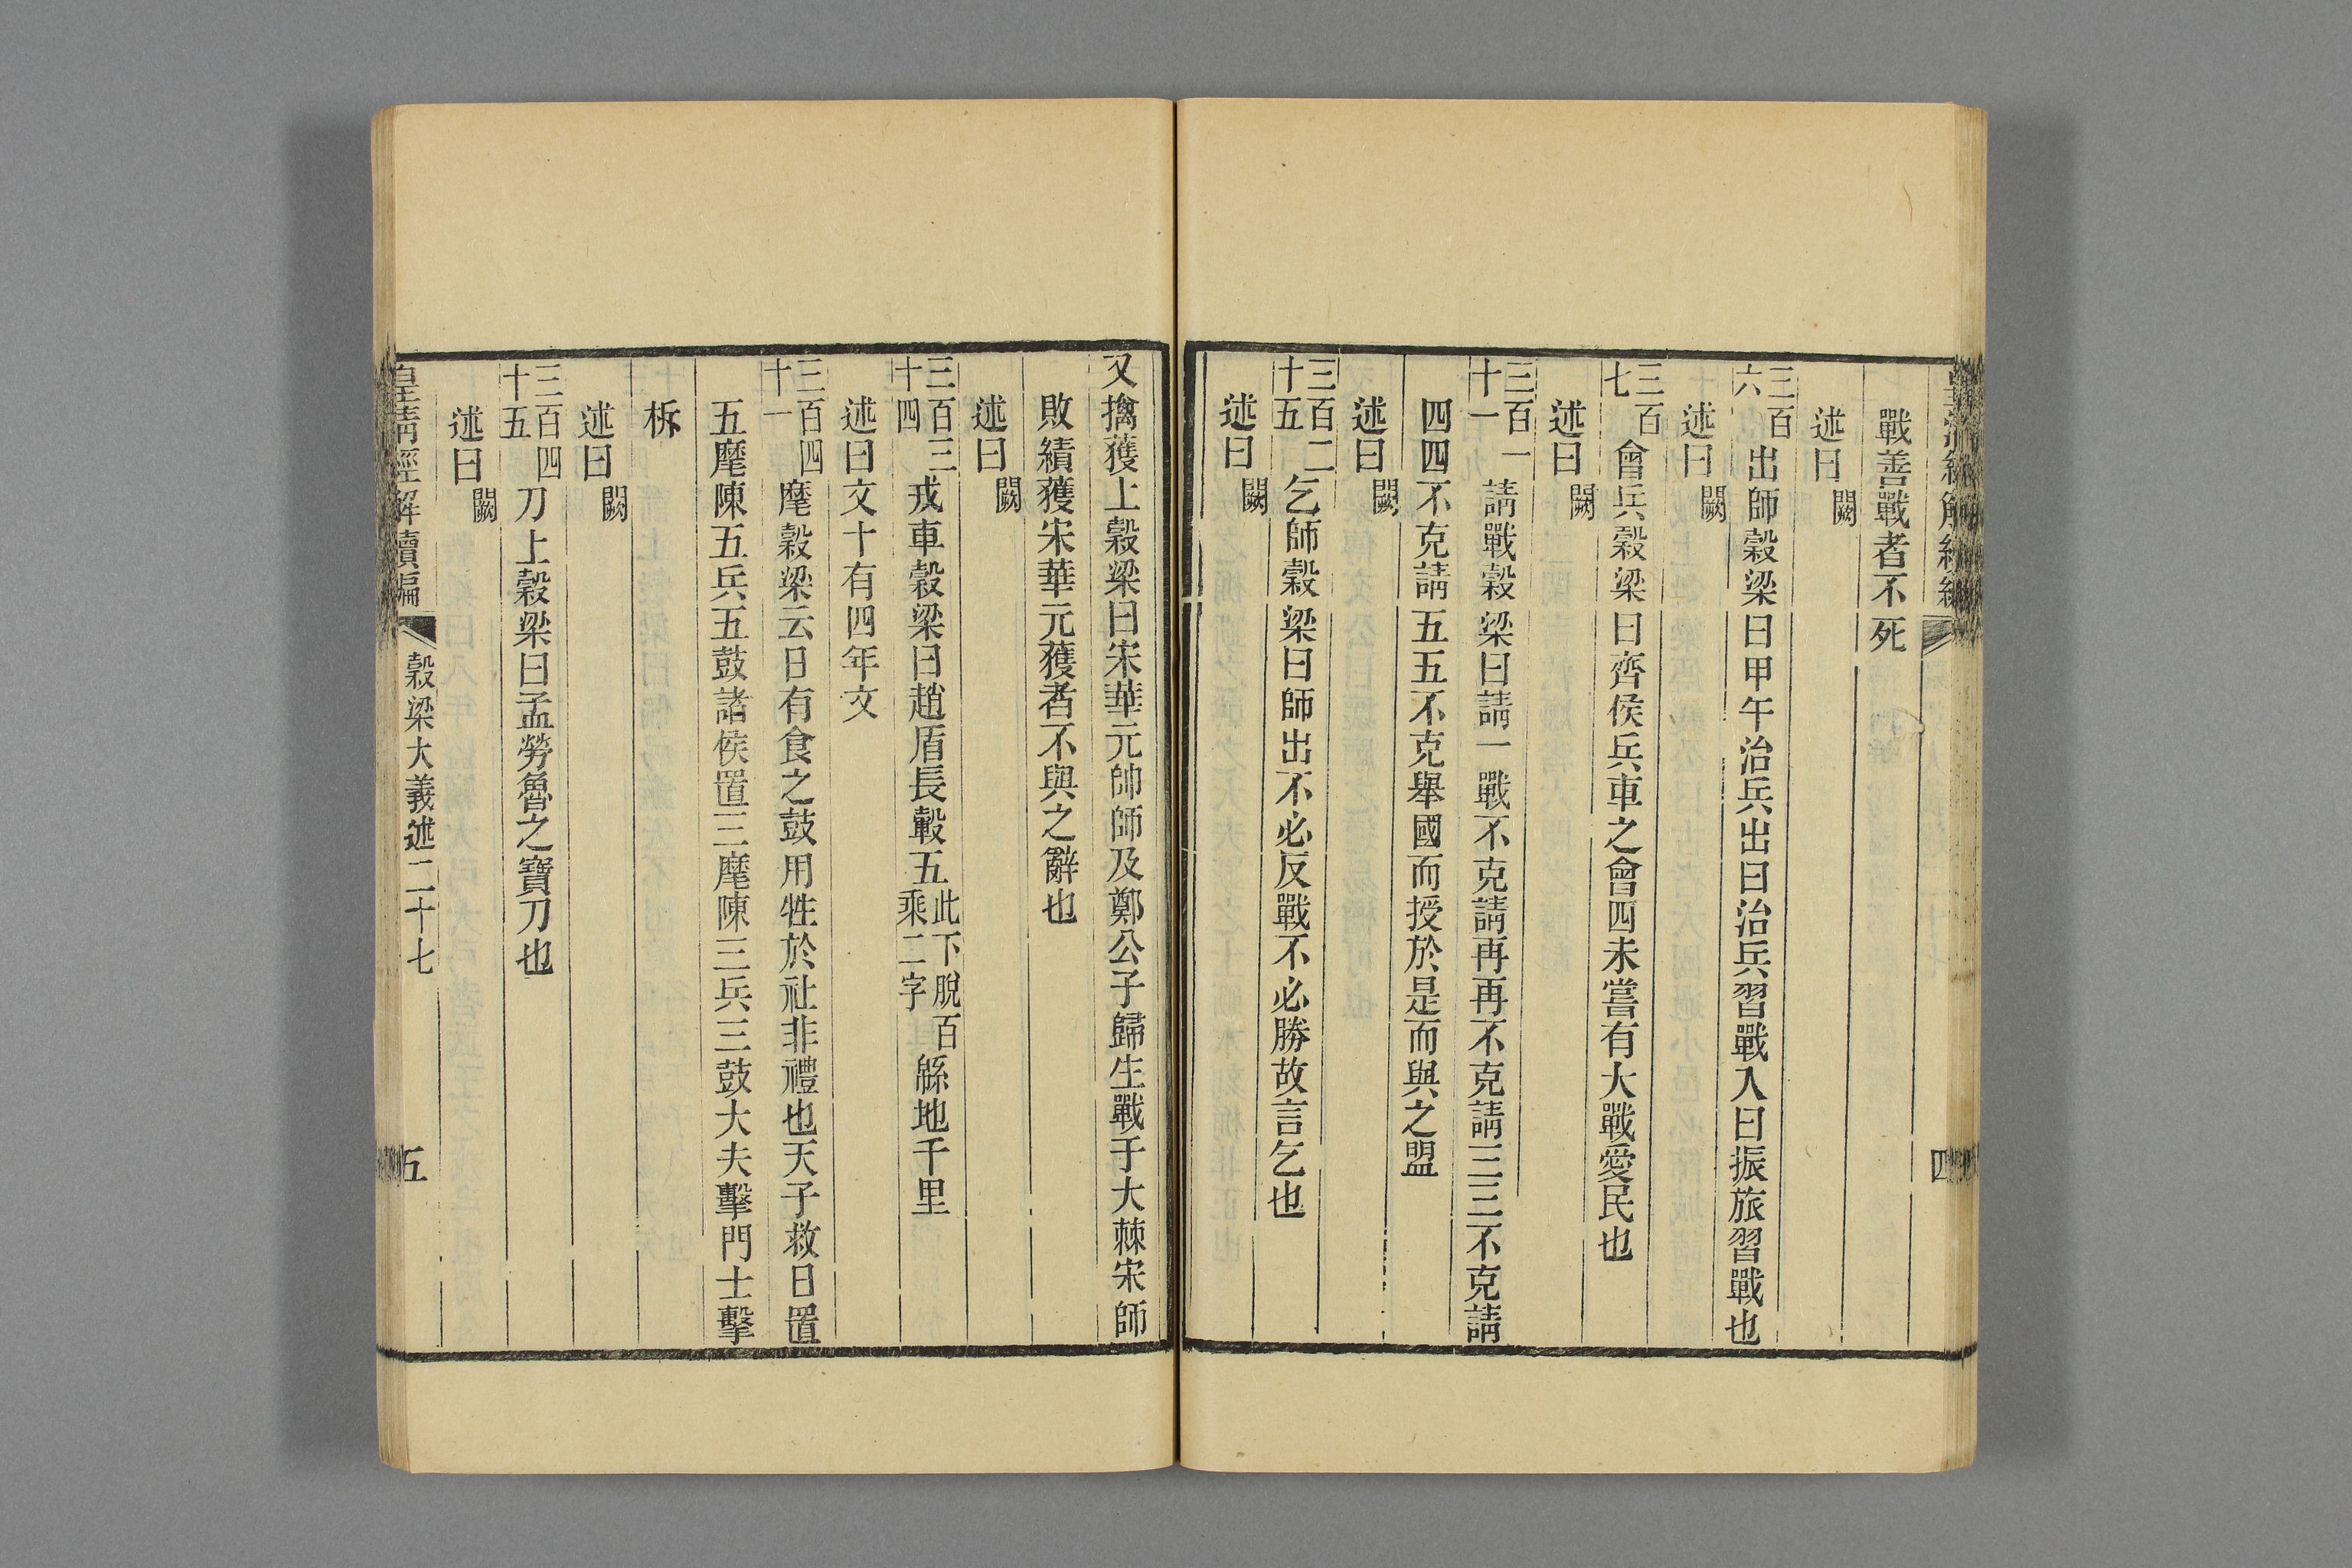 戰善戰者不死
述曰闕
三百六出師穀梁曰甲午治兵出曰治兵習戰入曰振旅習戰也
述曰闕
三百七會兵穀梁曰齊侯兵車之會四未嘗有大戰愛民也
述曰闕
三百一十一請戰穀梁曰請一戰不克請再再不克請三三不克請
四四不克請五五不克舉國而授於是而與之盟
述曰闕
三百二十五乞師穀梁曰師出不必反戰不必勝故言乞也
述曰闕
四
又擒獲上穀梁曰宋華元帥師及鄭公子歸生戰于大棘宋師
敗績獲宋華元獲者不與之辭也
述曰闕
三百三十四戎車穀梁曰趙盾長轂五此下脫百乘二字緜地千里
述曰文十有四年文
三百四十一麾穀梁云日有食之鼓用牲於社非禮也天子救日置
五麾陳五兵五鼓諸侯置三麾陳三兵三鼓大夫擊門士擊
柝
述曰闕
三百四十五刀上穀梁曰孟勞魯之寶刀也
述曰闕
皇清經解續編 穀梁大義述二十七 五